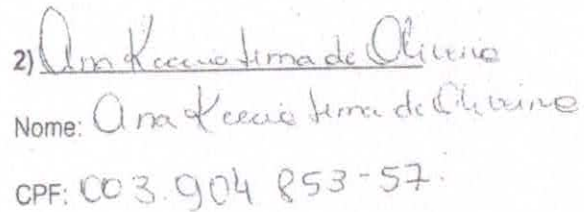 2) Ana Keccia Lima de Oliveira
Nome: Ana Keccia Lima de Oliveira
CPF: 003.904 853-57.